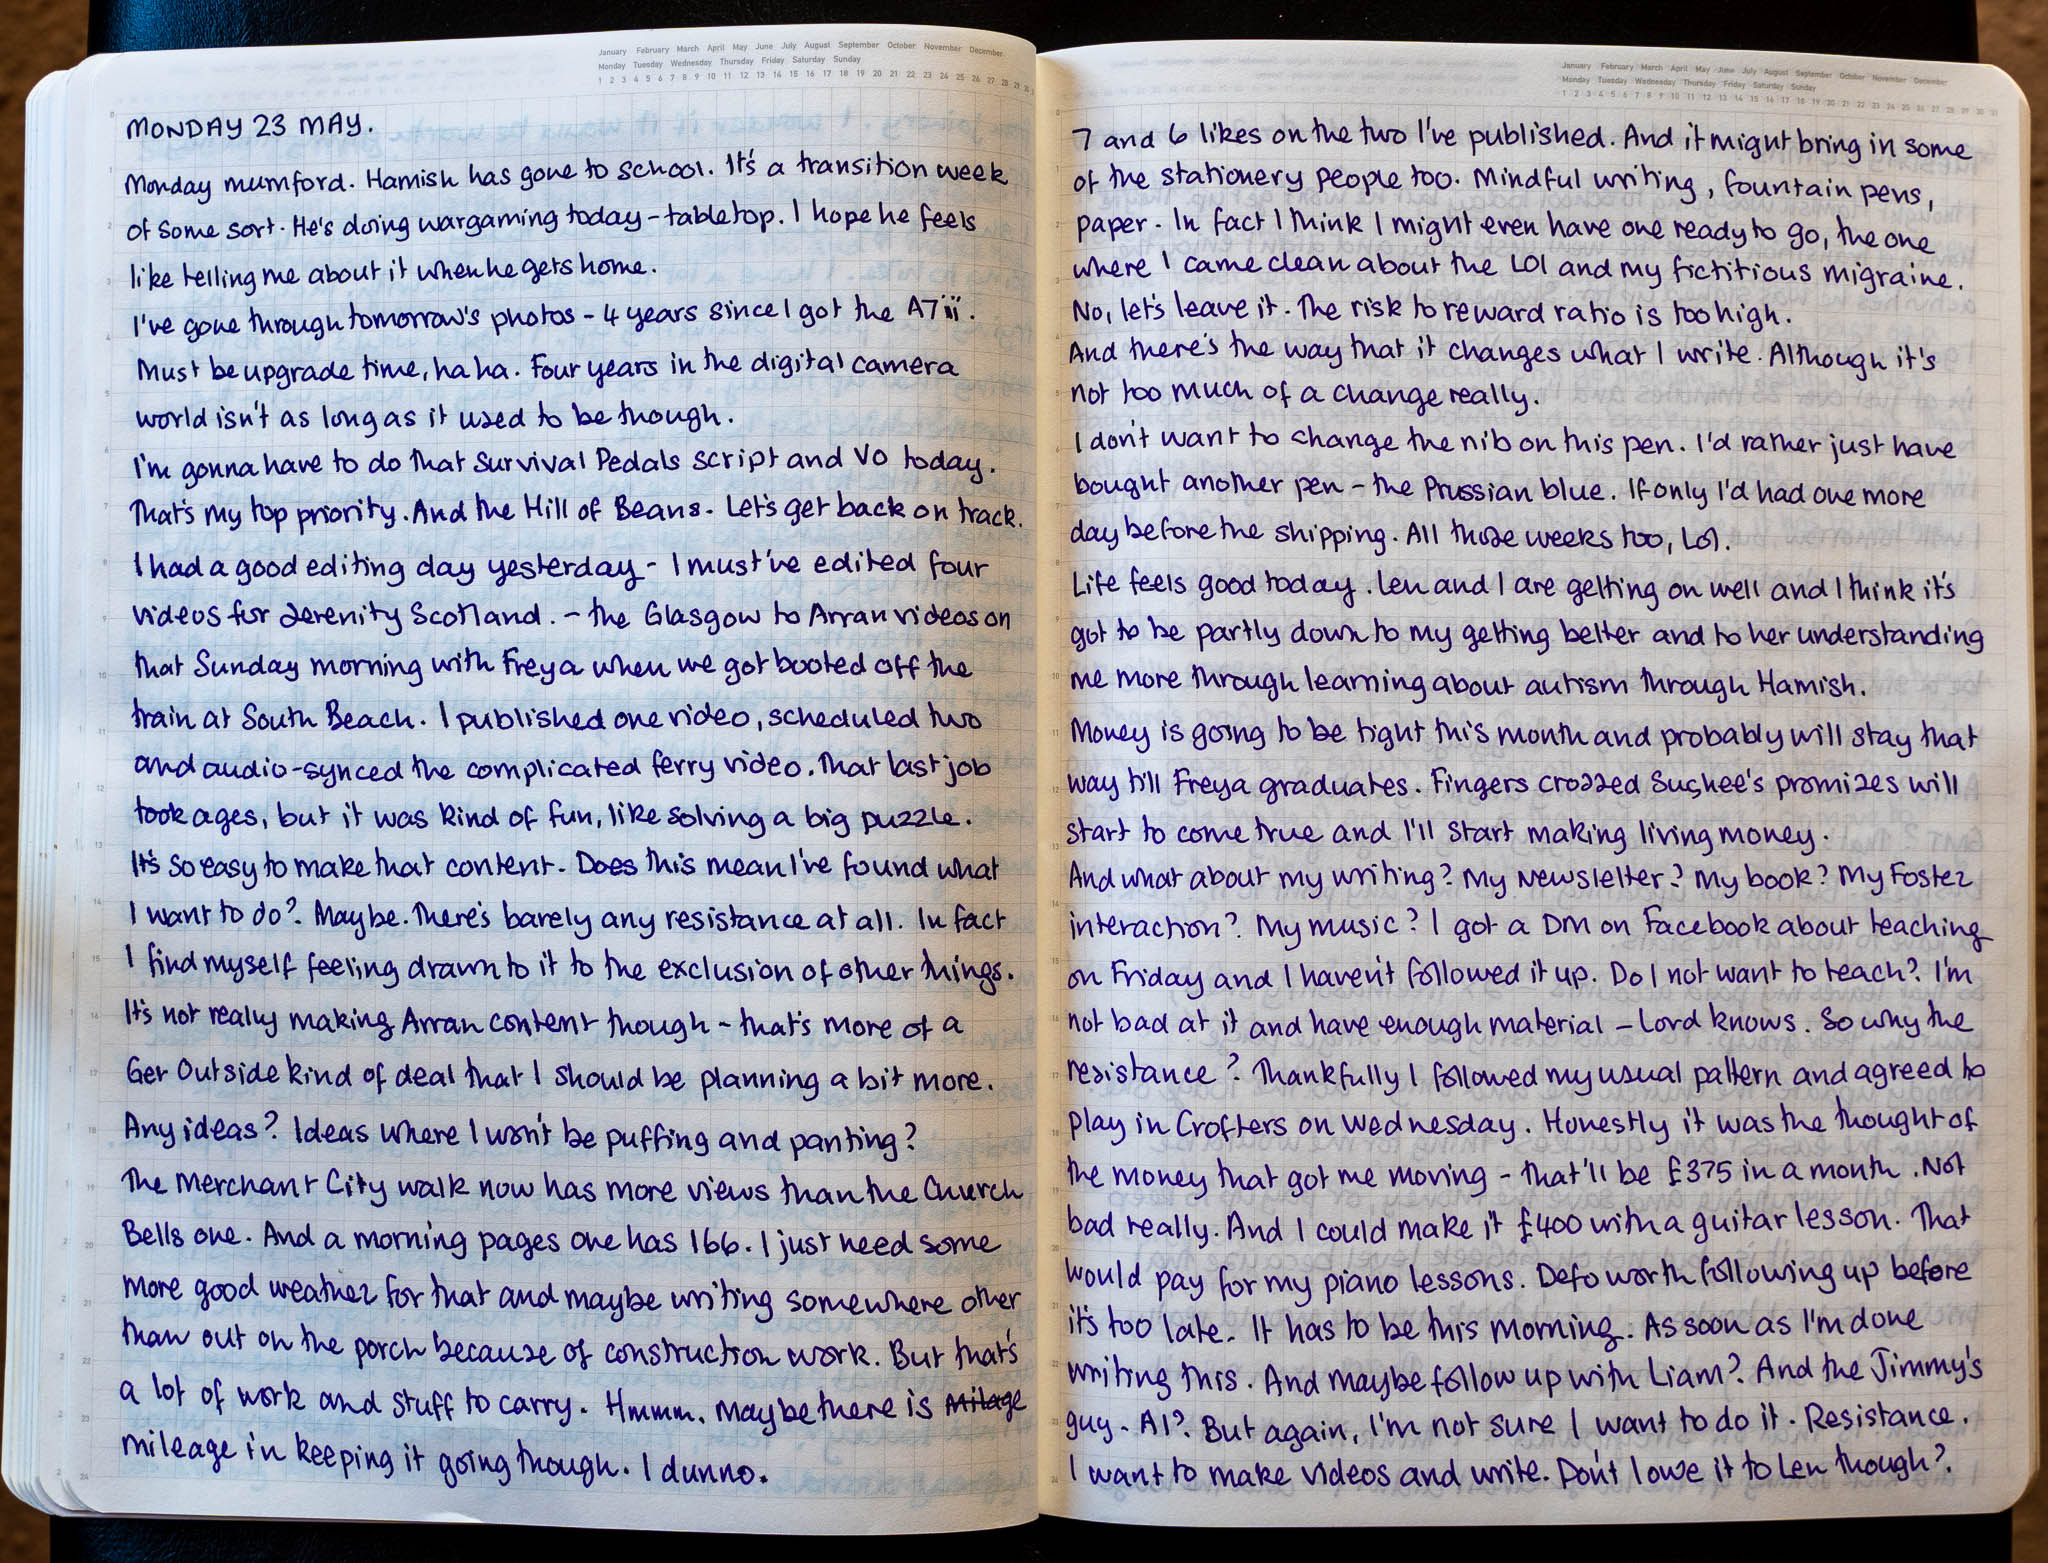 January February March April May June July August September October November December
Monday Tuesday Wednesday Thursday Friday Saturday Sunday
1 2 3 4 5 6 7 8 9 10 11 12 13 14 15 16 17 18 19 20 21 22 23 24 25 26 27 28 29 30 31
MONDAY 23 MAY.
Monday mumford. Hamish has gone to school. It's a transition week
of some sort. He's doing wargaming today - tabletop. I hope he feels
like telling me about it when he gets home.
I've gone through tomorrow's photos - 4 years since I got the A7iii.
Must be upgrade time, ha ha. Four years in the digital camera
world isn't as long as it used to be though.
I'm gonna have to do that Survival Pedals script and VO today.
That's my top priority. And the Hill of Beans. Let's get back on track.
I had a good editing day yesterday - I must've edited four
videos for Serenity Scotland. - the Glasgow to Arran videos on
that Sunday morning with Freya when we got booted off the
train at South Beach. I published one video, scheduled two
and audio-synced the complicated ferry video. That last job
took ages, but it was kind of fun, like solving a big puzzle.
It's so easy to make that content. Does this mean I've found what
I want to do? Maybe. There's barely any resistance at all. In fact
I find myself feeling drawn to it to the exclusion of other things.
It's not really making Arran content though - that's more of a
Get Outside kind of deal that I should be planning a bit more.
Any ideas? Ideas where I won't be puffing and panting?
The Merchant City walk now has more views than the Church
Bells one. And a morning pages one has 166. I just need some
more good weather for that and maybe writing somewhere other
than out on the porch because of construction work. But that's
a lot of work and stuff to carry. Hmmm. Maybe there is Milage
mileage in keeping it going though. I dunno.
January February March April May June July August September October November December
Monday Tuesday Wednesday Thursday Friday Saturday Sunday
1 2 3 4 5 6 7 8 9 10 11 12 13 14 15 16 17 18 19 20 21 22 23 24 25 26 27 28 29 30 31
7 and 6 likes on the two I've published. And it might bring in some
of the stationery people too. Mindful writing, fountain pens,
paper. In fact I think I might even have one ready to go, the one
where I came clean about the LOI and my fictitious migraine.
No, let's leave it. The risk to reward ratio is too high.
And there's the way that it changes what I write. Although it's
not too much of a change really.
I don't want to change the nib on this pen. I'd rather just have
bought another pen - the Prussian blue. If only I'd had one more
day before the shipping. All those weeks too, Lol.
Life feels good today. Len and I are getting on well and I think it's
got to be partly down to my getting better and to her understanding
me more through learning about autism through Hamish.
Money is going to be tight this month and probably will stay that
way till Freya graduates. Fingers crossed Suchee's promises will
start to come true and I'll start making living money.
And what about my writing? My Newsletter? My book? My Foster
interaction? My music? I got a DM on Facebook about teaching
on Friday and I haven't followed it up. Do I not want to teach? I'm
not bad at it and have enough material - Lord knows. So why the
resistance? Thankfully I followed my usual pattern and agreed to
play in Crofters on Wednesday. Honestly it was the thought of
the money that got me moving - that'll be £375 in a month. Not
bad really. And I could make it £400 with a guitar lesson. That
would pay for my piano lessons. Defo worth following up before
it's too late. It has to be this morning. As soon as I'm done
writing this. And maybe follow up with Liam? And the Jimmy's
guy. Al? But again, I'm not sure I want to do it. Resistance.
I want to make videos and write. Don't I owe it to Len though?